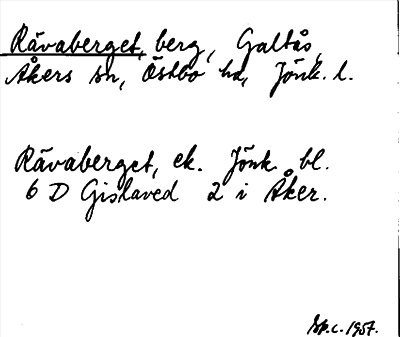 Rävaberget, berg, Galtås,
Åkers sn, Östbo hd, Jönk. l.
Rävaberget, ek. Jönk. bl.
6 D Gislaved 2 i Åker.
Sp.c. 1957.